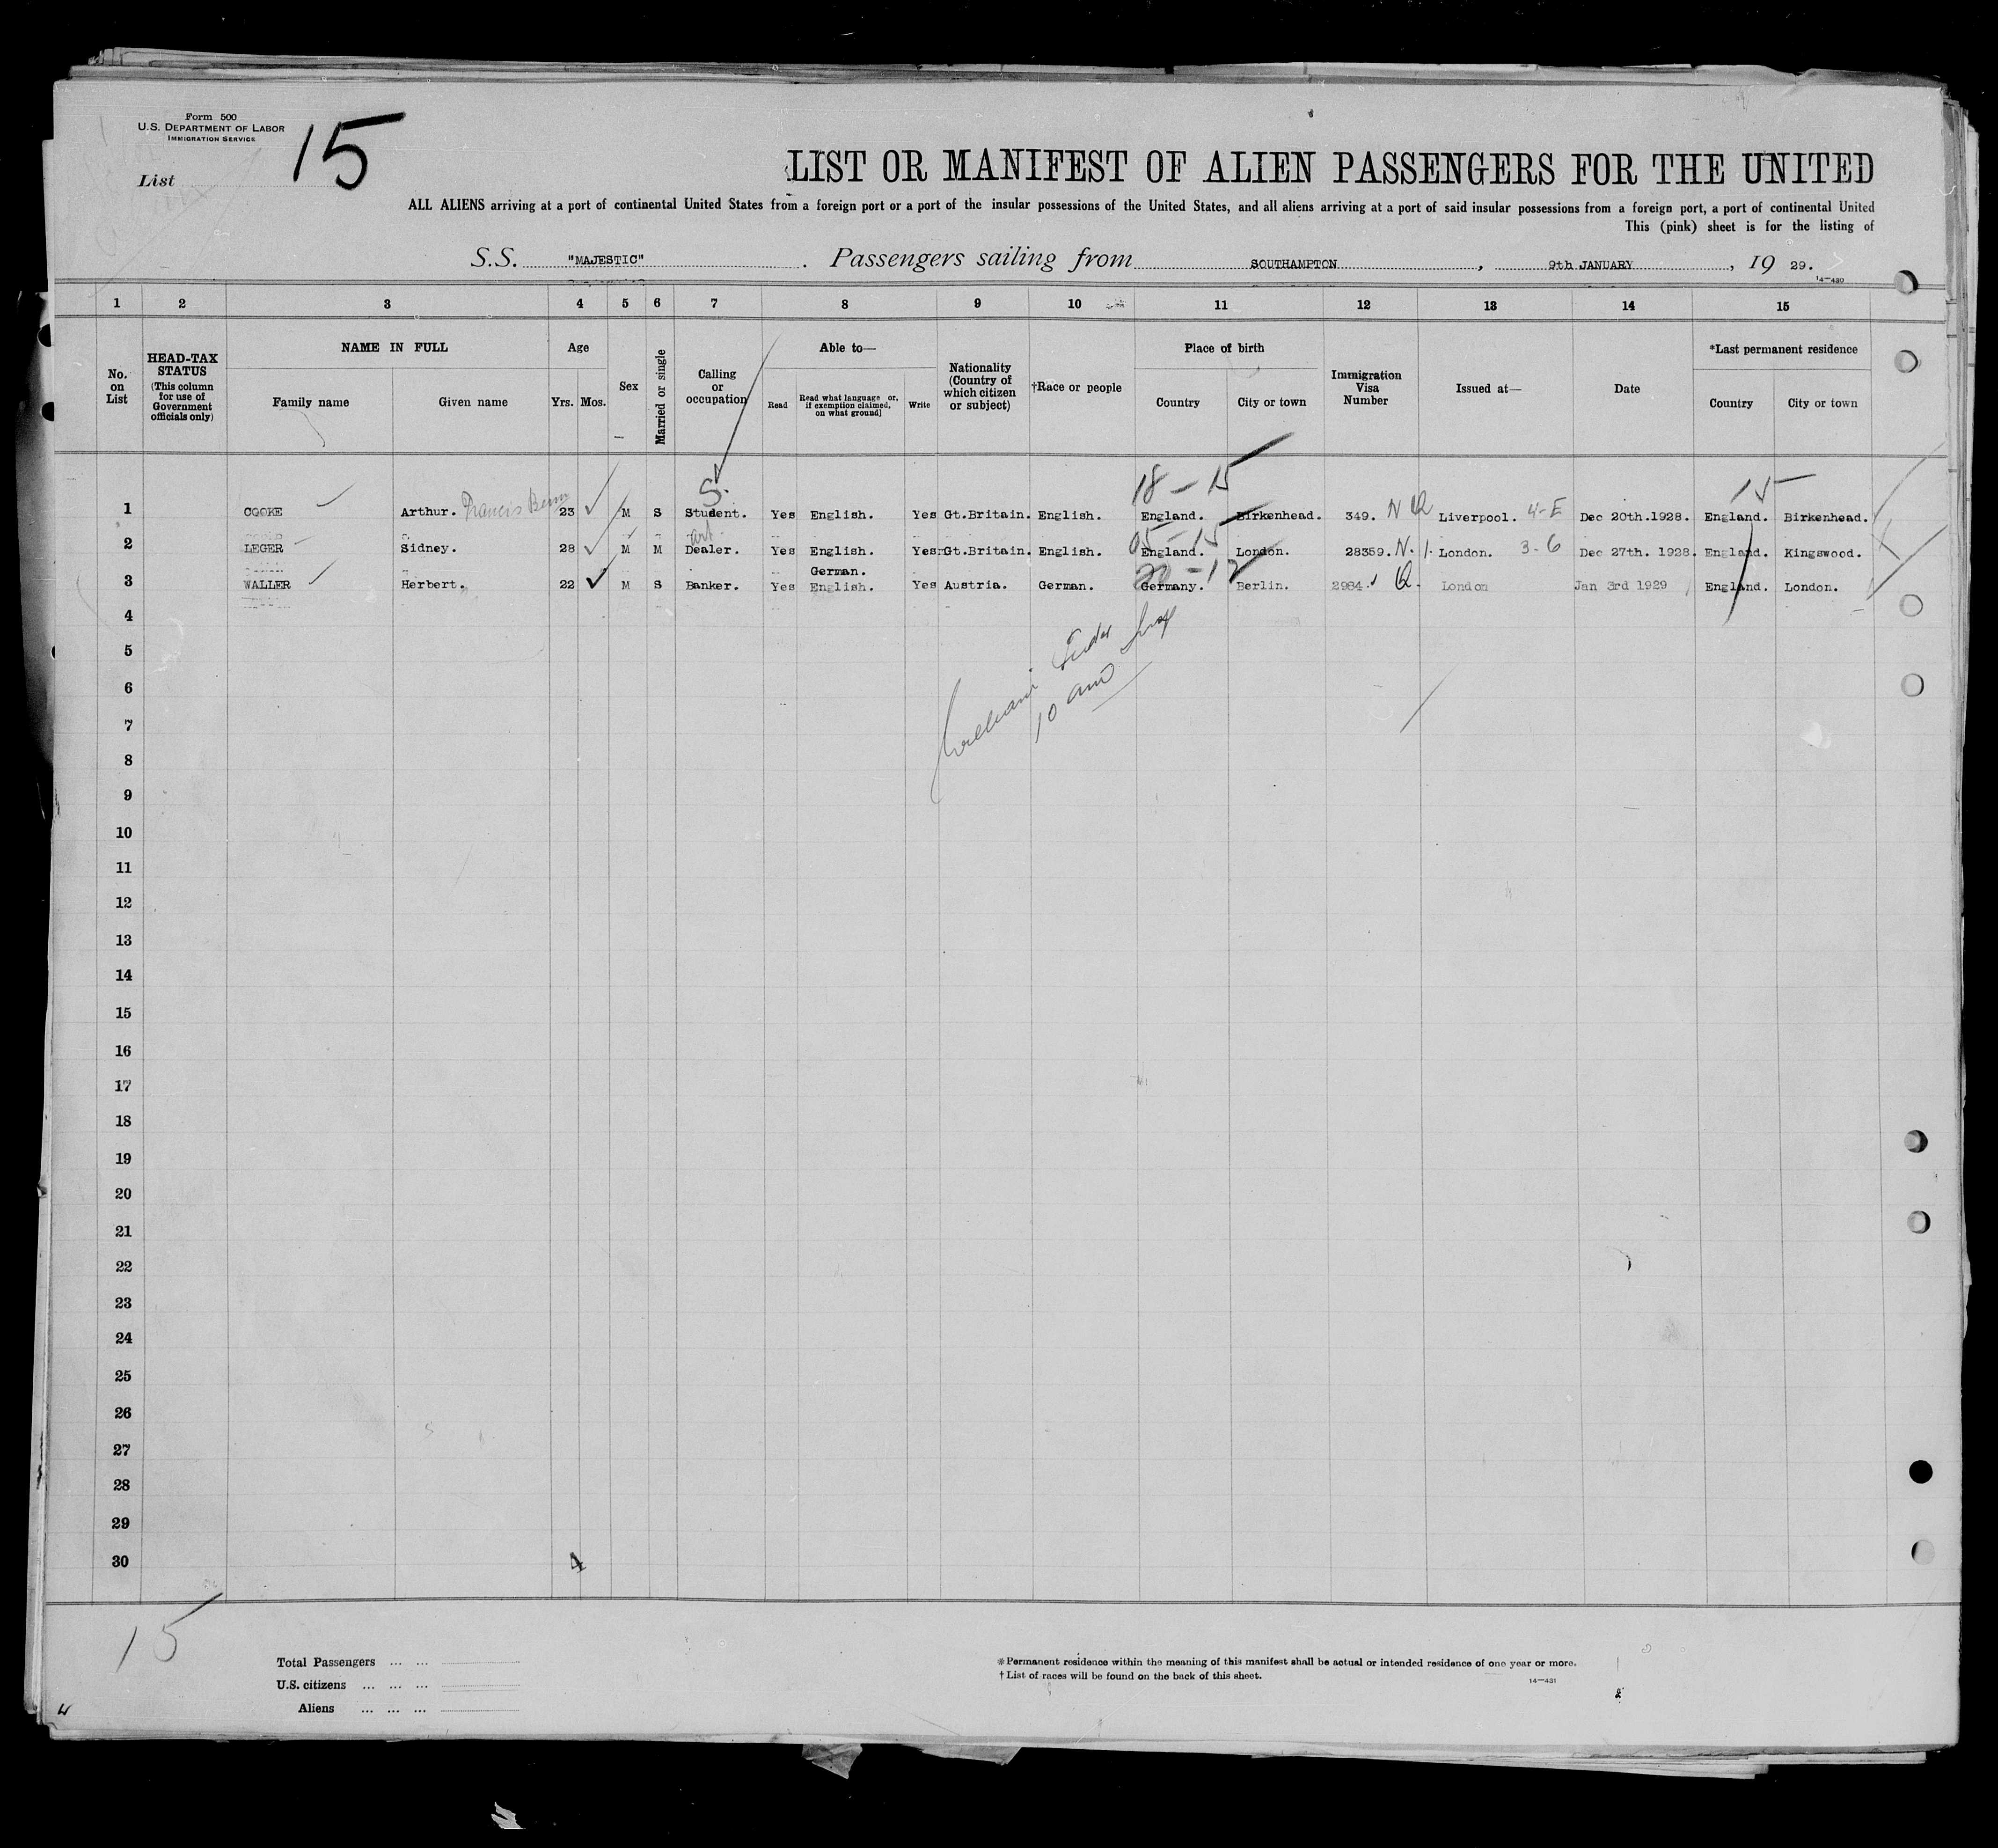 Form 500
U.S. DEPARTMENT OF LABOR
IMMIGRATION SERVICE
List 15
LIST OR MANIFEST OF ALIEN PASSENGERS FOR THE UNITED
ALL ALIENS arriving at a port of continental United States from a foreign port or a port of the insular possessions of the United States, and all aliens arriving at a port of said insular possessions from a foreign port, a port of continental United
This (pink) sheet is for the listing of
S.S. "MAJESTIC". Passengers sailing from SOUTHAMPTON, 9th JANUARY, 19 29.
14-430
1 2 3 4 5 6 7 8 9 10 11 12 13 14 15
No. on List
HEAD-TAX STATUS (This column for use of Government officials only)
NAME IN FULL
Family name Given name
Age
Yrs. Mos.
Sex
Married or single
Calling or occupation
Able to—
Read Read what language or, if exemption claimed, on what ground) Write
Nationality (Country of which citizen or subject)
†Race or people
Place of birth
Country City or town
Immigration Visa Number
Issued at—
Date
*Last permanent residence
Country City or town
S. 18-15 15
1 COOKE Arthur. Francis 23 M S Student. Yes English. Yes Gt.Britain. English. England. Birkenhead. 349. N Q Liverpool. 4-E Dec 20th.1928. England. Birkenhead.
art 05-15
2 LEGER Sidney. 28 M M Dealer. Yes English. Yes Gt.Britain. English. England. London. 28359. N.1. London. 3-6 Dec 27th. 1928. England. Kingswood.
German.
3 WALLER Herbert. 22 M S Banker. Yes English. Yes Austria. German. Germany. Berlin. 2984. Q. London Jan 3rd 1929 England. London.
4
5
6
10 am
7
8
9
10
11
12
13
14
15
16
17
18
19
20
21
22
23
24
25
26
27
28
29
30
4
15
Total Passengers ... ...
U.S. citizens ... ... ...
Aliens ... ... ...
*Permanent residence within the meaning of this manifest shall be actual or intended residence of one year or more.
†List of races will be found on the back of this sheet.
14-431